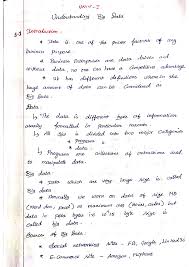 UNIT-I
Understanding Big Data
Introduction:
* Data is one of the prime factors of any
business purpose
* Business Enterprises are data driven and
without data, no one can have a competitive advantage
* It has different definitions wherein the
huge amount of data can be considered as
Big Data
Data
* Data is different type of information
usually formatted in particular manner.
* All the is divided into two major categories
Program
data
Program are collections of instructions
to manipulate data.
Big data
* Data which are very large in size is called
Big data
* Normally we work on data of size MB
(Word doc, ) or maximum GB (Movies, codes) but
data in peta bytes i.e. 10^15 byte size is called
big data.
Sources of Big Data
* Social networking sites - FB, Google, LinkedIn
* E-Commerce site - Amazon, Flipkart